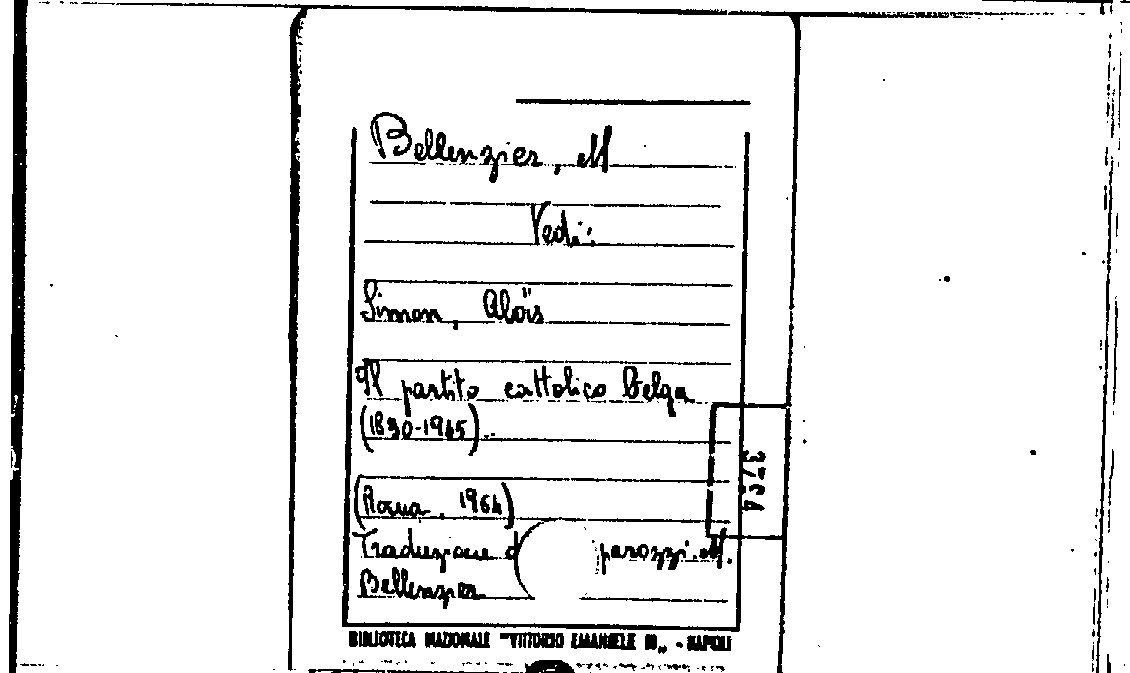 Bellenzier, M
Vedi:
Simon, Aloïs
Il partito cattolico belga
(1830-1945)..
(Roma, 1964)
Traduzione d parozzi. M.
Bellenzier
BIBLIOTECA NAZIONALE "VITTORIO EMANUELE III" - NAPOLI